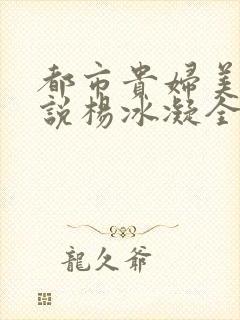 都市貴婦美
說楊冰凝全
龍久爺